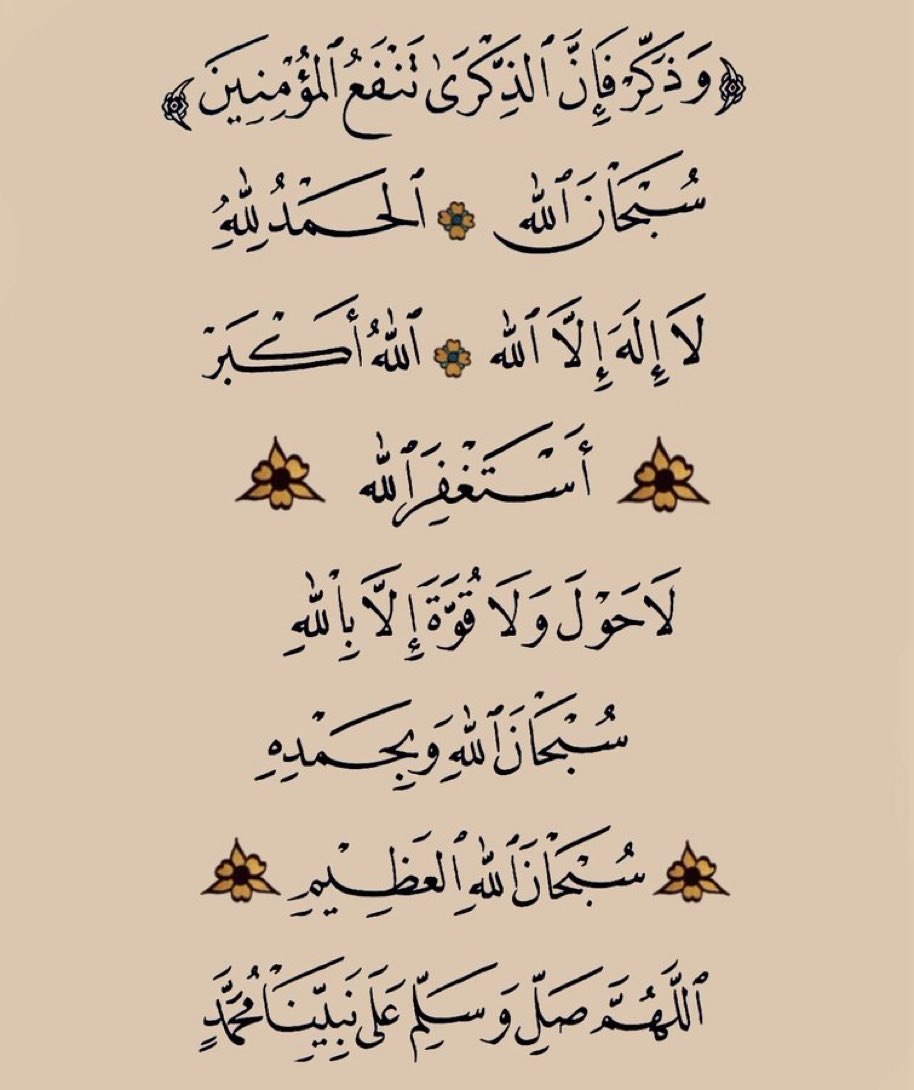 ﴿وَذَكِّرْ فَإِنَّ ٱلذِّكْرَىٰ تَنْفَعُ ٱلْمُؤْمِنِينَ﴾
سُبْحَانَ ٱللَّه ٱلْحَمْدُ لِلَّهِ
لَا إِلَهَ إِلَّا ٱللَّه ٱللَّهُ أَكْبَرْ
أَسْتَغْفِرُ ٱللَّه
لَا حَوْلَ وَلَا قُوَّةَ إِلَّا بِٱللَّهِ
سُبْحَانَ ٱللَّهِ وَبِحَمْدِهِ
سُبْحَانَ ٱللَّهِ ٱلْعَظِيمِ
ٱللَّهُمَّ صَلِّ وَسَلِّمْ عَلَى نَبِيِّنَا مُحَمَّدٍ